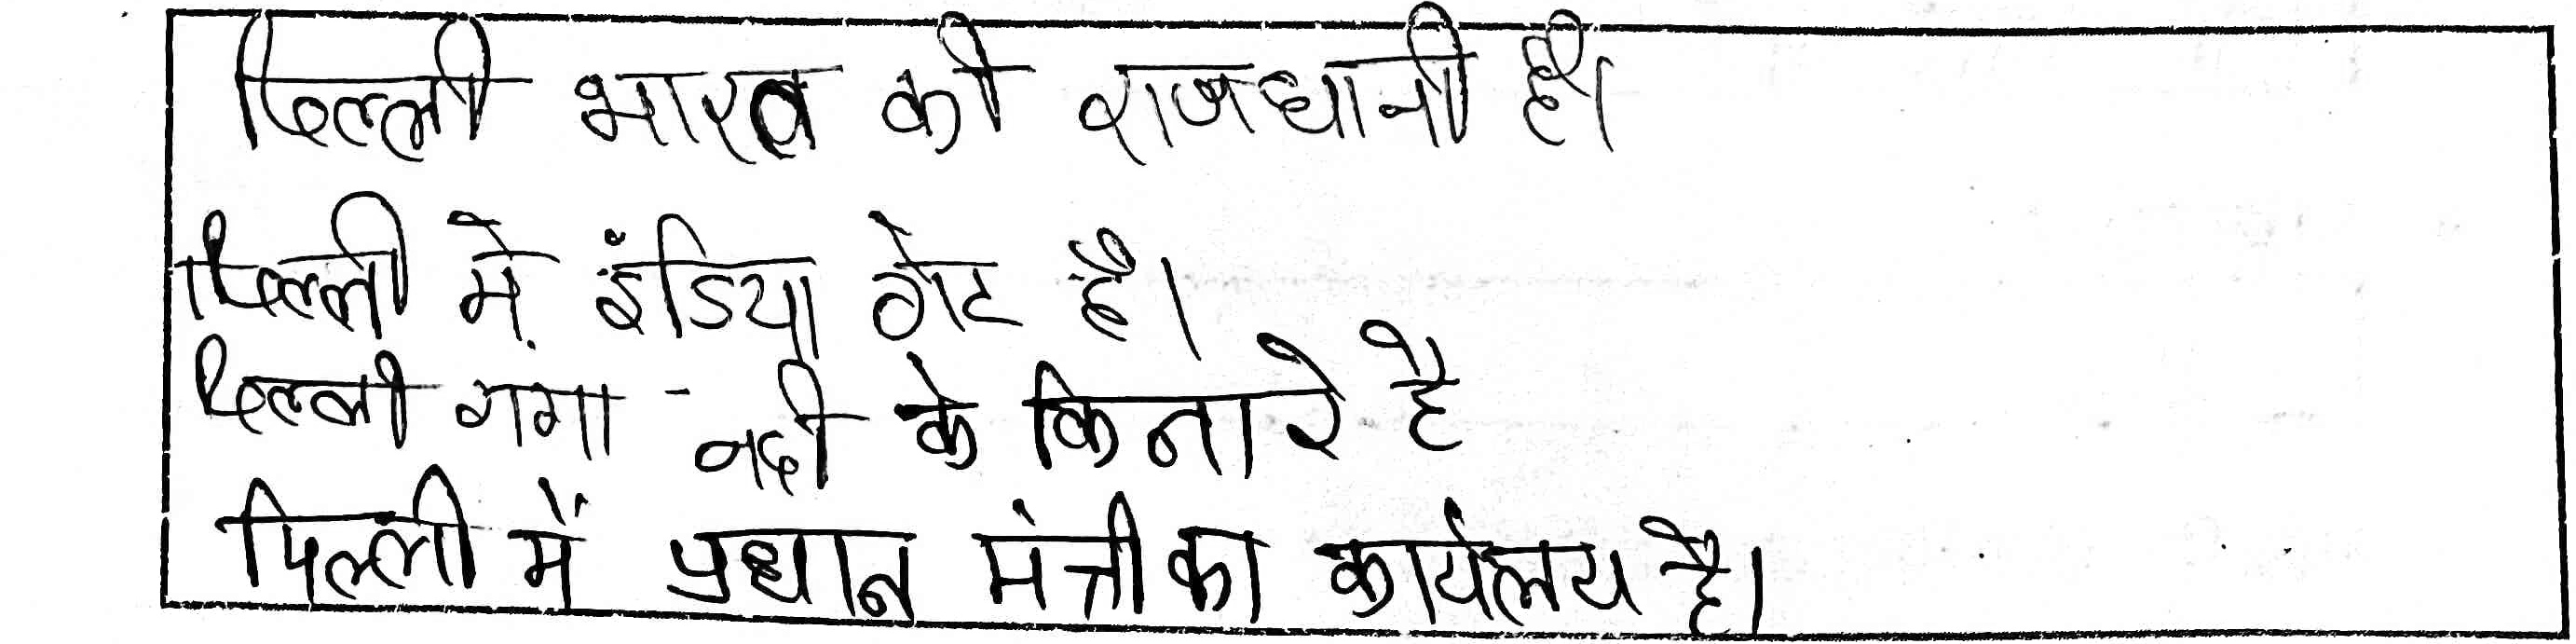 दिल्ली भारत की राजधानी है।
दिल्ली में इंडिया गेट है।
दिल्ली गंगा नदी के किनारे है
दिल्ली में प्रधान मंत्री का कार्यलय है।